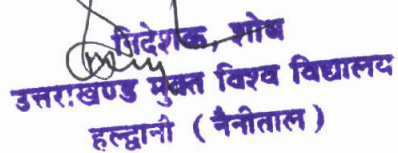 निदेशक, शोध
उत्तराखण्ड मुक्त विश्व विद्यालय
हल्द्वानी ( नैनीताल )